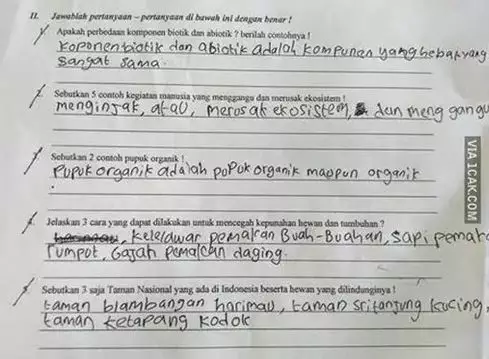 II. Jawablah pertanyaan – pertanyaan di bawah ini dengan benar !
Apakah perbedaan komponen biotik dan abiotik ? berilah contohnya !
Koponen biotik dan abiotik adalah kompunen yang
sangat sama.
Sebutkan 5 contoh kegiatan manusia yang mengganggu dan merusak ekosistem !
menginjak, atau, merosak ekosistem, dan meng gangu
Sebutkan 2 contoh pupuk organik !
Pupuk organik adalah pupuk organik maopun organik
.
4. Jelaskan 3 cara yang dapat dilakukan untuk mencegah kepunahan hewan dan tumbuhan ?
, kelelawar pemakan Buah-Buahan, sapi pemak
rumput, Gajah pemakan daging.
5. Sebutkan 3 saja Taman Nasional yang ada di Indonesia beserta hewan yang dilindunginya !
taman blambangan harimau, taman sritanjung kucing,
taman ketapang kodok
VIA 1CAK.COM